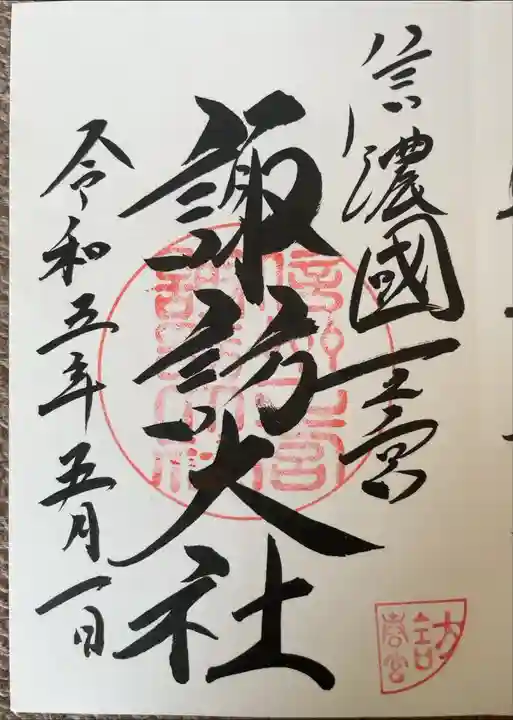 信濃國一之宮
諏訪大社
令和五年五月一日
春宮